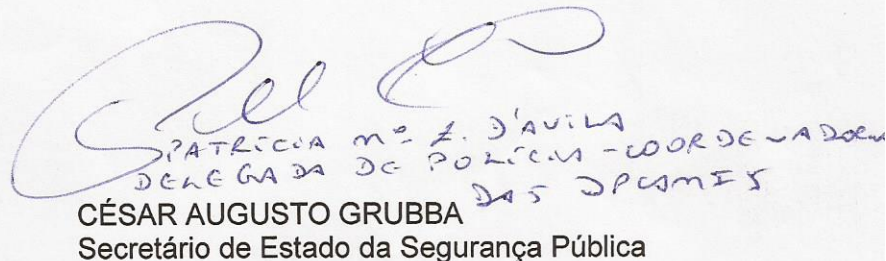 PATRÍCIA Mª Z. D'AVILA
DELEGADA DE POLÍCIA - COORDENADORA
DAS DPCAMIS
CÉSAR AUGUSTO GRUBBA
Secretário de Estado da Segurança Pública